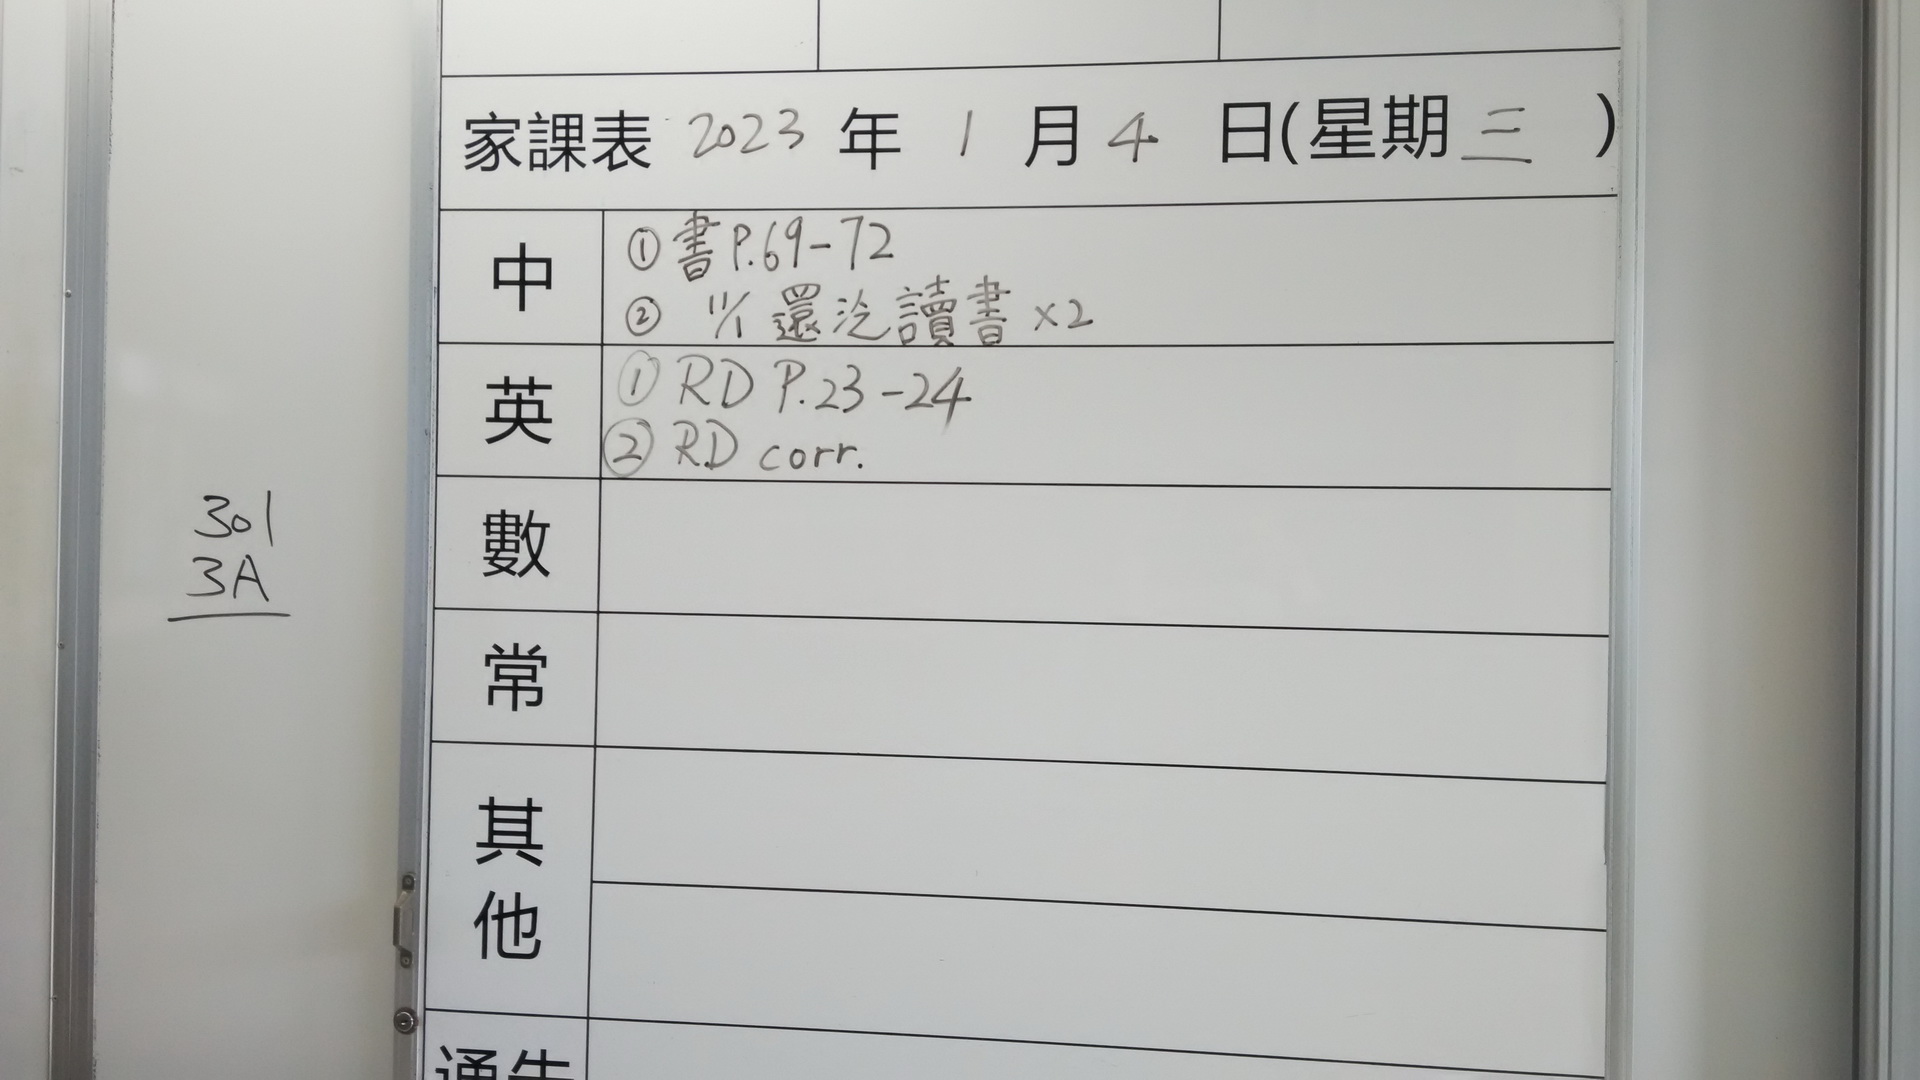 家課表 2023 年 1 月 4 日(星期三)
中
① 書 P.69-72
② 11/1 還泛讀書 x2
英
① RD P.23-24
② RD corr.
數
常
其他
通告
301
3A